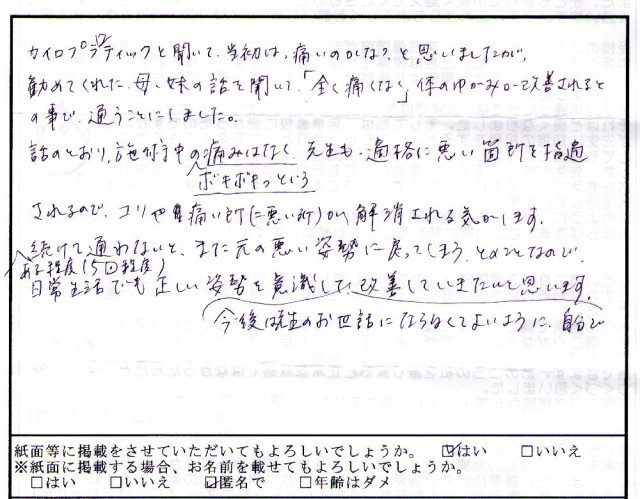 カイロプラティックと聞いて、当初は、痛いのかな?と思いましたが、
勧めてくれた、母、妹の話を聞いて、「全く痛くなく」体のゆがみが改善されると
の事で、通うことにしました。
話のとおり、施術中の痛みはなく、先生も、適格に悪い箇所を指適
ボキボキっという
されるので、コリや痛い所(=悪い所)が解消される気がします。
続けて通わないと、また元の悪い姿勢に戻ってしまう、とのことなので、
ある程度(5回程度)
日常生活でも正しい姿勢を意識して、改善していきたいと思います。
今後は先生のお世話にならなくてよいように、自分で
紙面等に掲載をさせていただいてもよろしいでしょうか。 ☑はい □いいえ
※紙面に掲載する場合、お名前を載せてもよろしいでしょうか。
□はい □いいえ ☑匿名で □年齢はダメ